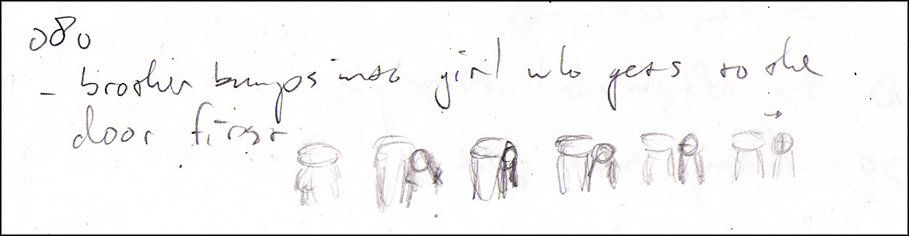 080
- brother bumps into girl who gets to the
door first